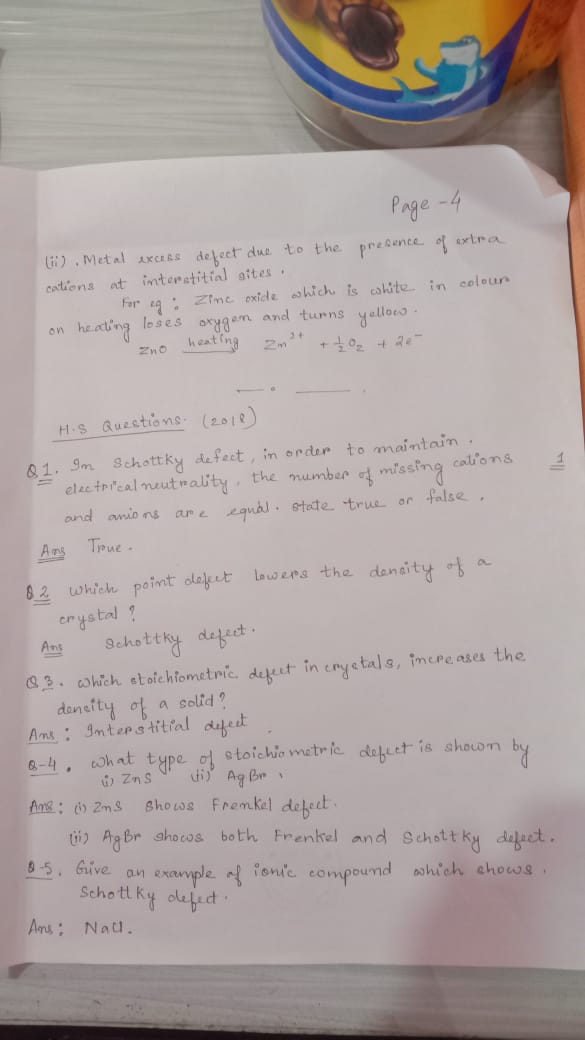 Page -4
(ii). Metal excess defect due to the presence of extra
cations at interstitial sites.
For eg : Zinc oxide which is white in colour
on heating loses oxygen and turns yellow.
ZnO heating Zn²⁺ + ½O₂ + 2e⁻
H.S Questions. (2018)
Q1. In Schottky defect, in order to maintain.
electrical neutrality, the number of missing cations 1
and anions are equal. State true or false.
Ans True.
Q2 Which point defect lowers the density of a
crystal?
Ans Schottky defect.
Q3. Which stoichiometric defect in crystals, increases the
density of a solid?
Ans : Interstitial defect
Q-4. What type of stoichiometric defect is shown by
(i) ZnS (ii) AgBr.
Ans : (i) ZnS shows Frenkel defect.
(ii) AgBr shows both Frenkel and Schottky defect.
Q-5. Give an example of ionic compound which shows.
Schottky defect.
Ans : NaCl.